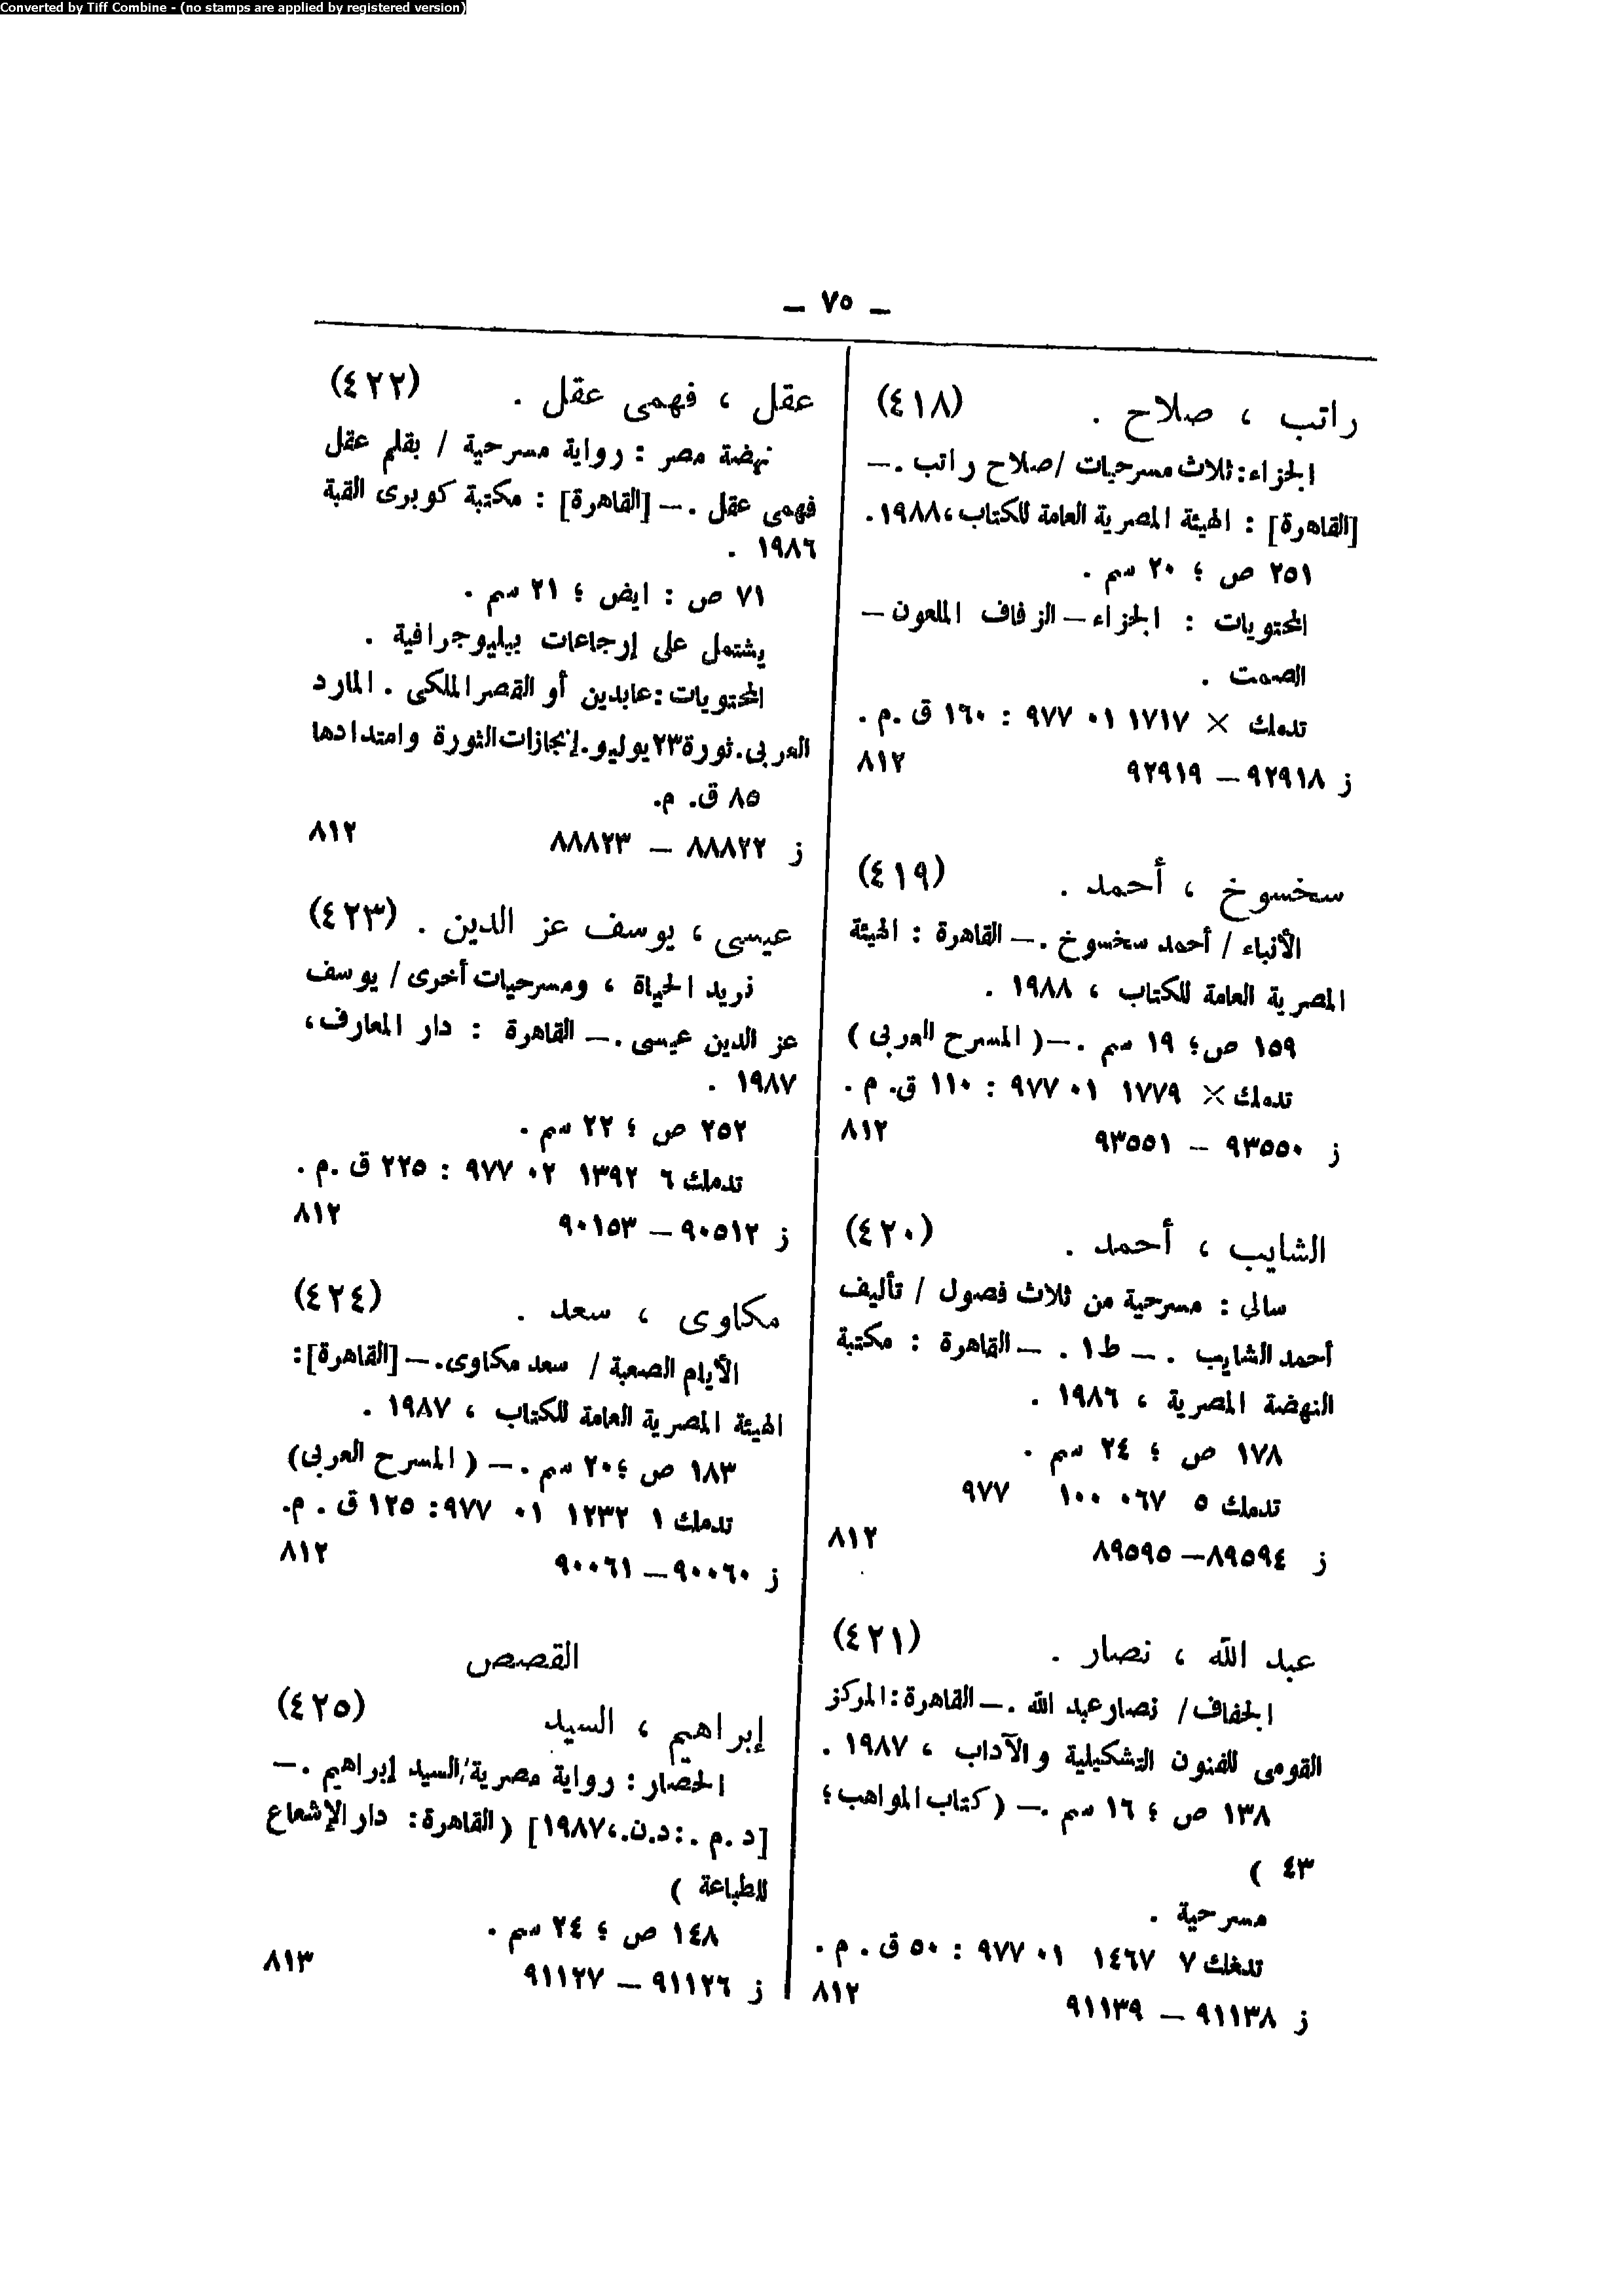 Converted by Tiff Combine - (no stamps are applied by registered version)
— ٧٥ —
راتب ، صلاح . (٤١٨)
الجزاء : ثلاث مسرحيات / صلاح راتب .—
[القاهرة] : الهيئة المصرية العامة للكتاب ، ١٩٨٨ .
٢٥١ ص ؛ ٢٠ سم .
المحتويات : الجزاء — الزفاف الملعون —
الصمت .
تدمك × ١٧١٧ ٠١ ٩٧٧ : ١٦٠ ق .م .
ز ٩٢٩١٨ — ٩٢٩١٩ ٨١٢
سخسوخ ، أحمد . (٤١٩)
الأنباء / أحمد سخسوخ .— القاهرة : الهيئة
المصرية العامة للكتاب ، ١٩٨٨ .
١٥٩ ص؛ ١٩ سم .—( المسرح العربى )
تدمك × ١٧٧٩ ٠١ ٩٧٧ : ١١٠ ق. م .
ز ٩٣٥٥٠ — ٩٣٥٥١ ٨١٢
الشايب ، أحمد . (٤٢٠)
سالي : مسرحية من ثلاث فصول / تأليف
أحمد الشايب .— ط١ .— القاهرة : مكتبة
النهضة المصرية ، ١٩٨٦ .
١٧٨ ص ؛ ٢٤ سم .
تدمك ٥ ٠٦٧ ١٠٠ ٩٧٧
ز ٨٩٥٩٤ — ٨٩٥٩٥ ٨١٢
عبد الله ، نصار . (٤٢١)
الجفاف / نصار عبد الله .— القاهرة : المركز
القومى للفنون التشكيلية والآداب ، ١٩٨٧ .
١٣٨ ص ؛ ١٦ سم .— ( كتاب المواهب ؛
٤٣ )
مسرحية .
تدمك ٧ ١٤٦٧ ٠١ ٩٧٧ : ٥٠ ق . م .
ز ٩١١٣٨ — ٩١١٣٩ ٨١٢
عقل ، فهمى عقل . (٤٢٢)
نهضة مصر : رواية مسرحية / بقلم عقل
فهمى عقل .— [القاهرة] : مكتبة كوبرى القبة
١٩٨٦ .
٧١ ص : ايض ؛ ٢١ سم .
يشتمل على إرجاعات ببليوجرافية .
المحتويات : عابدين أو القصر الملكى . المارد
العربى . ثورة ٢٣ يوليو . إنجازات الثورة وامتدادها
٨٥ ق. م.
ز ٨٨٨٢٢ — ٨٨٨٢٣ ٨١٢
عيسى ، يوسف عز الدين . (٤٢٣)
نريد الحياة ، ومسرحيات أخرى / يوسف
عز الدين عيسى .— القاهرة : دار المعارف ،
١٩٨٧ .
٢٥٢ ص ؛ ٢٢ سم .
تدمك ٦ ١٣٩٢ ٠٢ ٩٧٧ : ٢٢٥ ق .م .
ز ٩٠٥١٢ — ٩٠١٥٣ ٨١٢
مكاوى ، سعد . (٤٢٤)
الأيام الصعبة / سعد مكاوى.— [القاهرة]:
الهيئة المصرية العامة للكتاب ، ١٩٨٧ .
١٨٣ ص ؛ ٢٠ سم .— ( المسرح العربى)
تدمك ١ ١٢٣٢ ٠١ ٩٧٧ : ١٢٥ ق . م.
ز ٩٠٠٦٠ — ٩٠٠٦١ ٨١٢
القصص
إبراهيم ، السيد (٤٢٥)
الحصار : رواية مصرية / السيد إبراهيم .—
[د .م . : د.ن.، ١٩٨٧] ( القاهرة : دار الإشعاع
للطباعة )
١٤٨ ص ؛ ٢٤ سم .
ز ٩١١٢٦ — ٩١١٢٧ ٨١٣